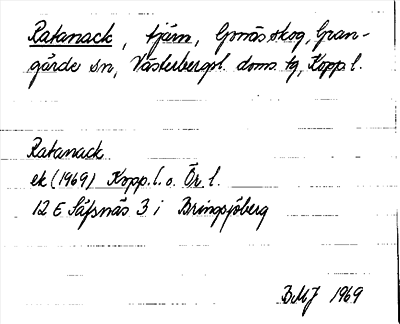 Ratanack, tjärn, Gonäs skog, Gran-
gärde sn, Västerbergsl. doms. tg, Kopp. l.
Ratanack
ek (1969) Kopp. l. o. Ör. l.
12 E Säfsnäs 3 i Bringsjöberg
BMJ 1969